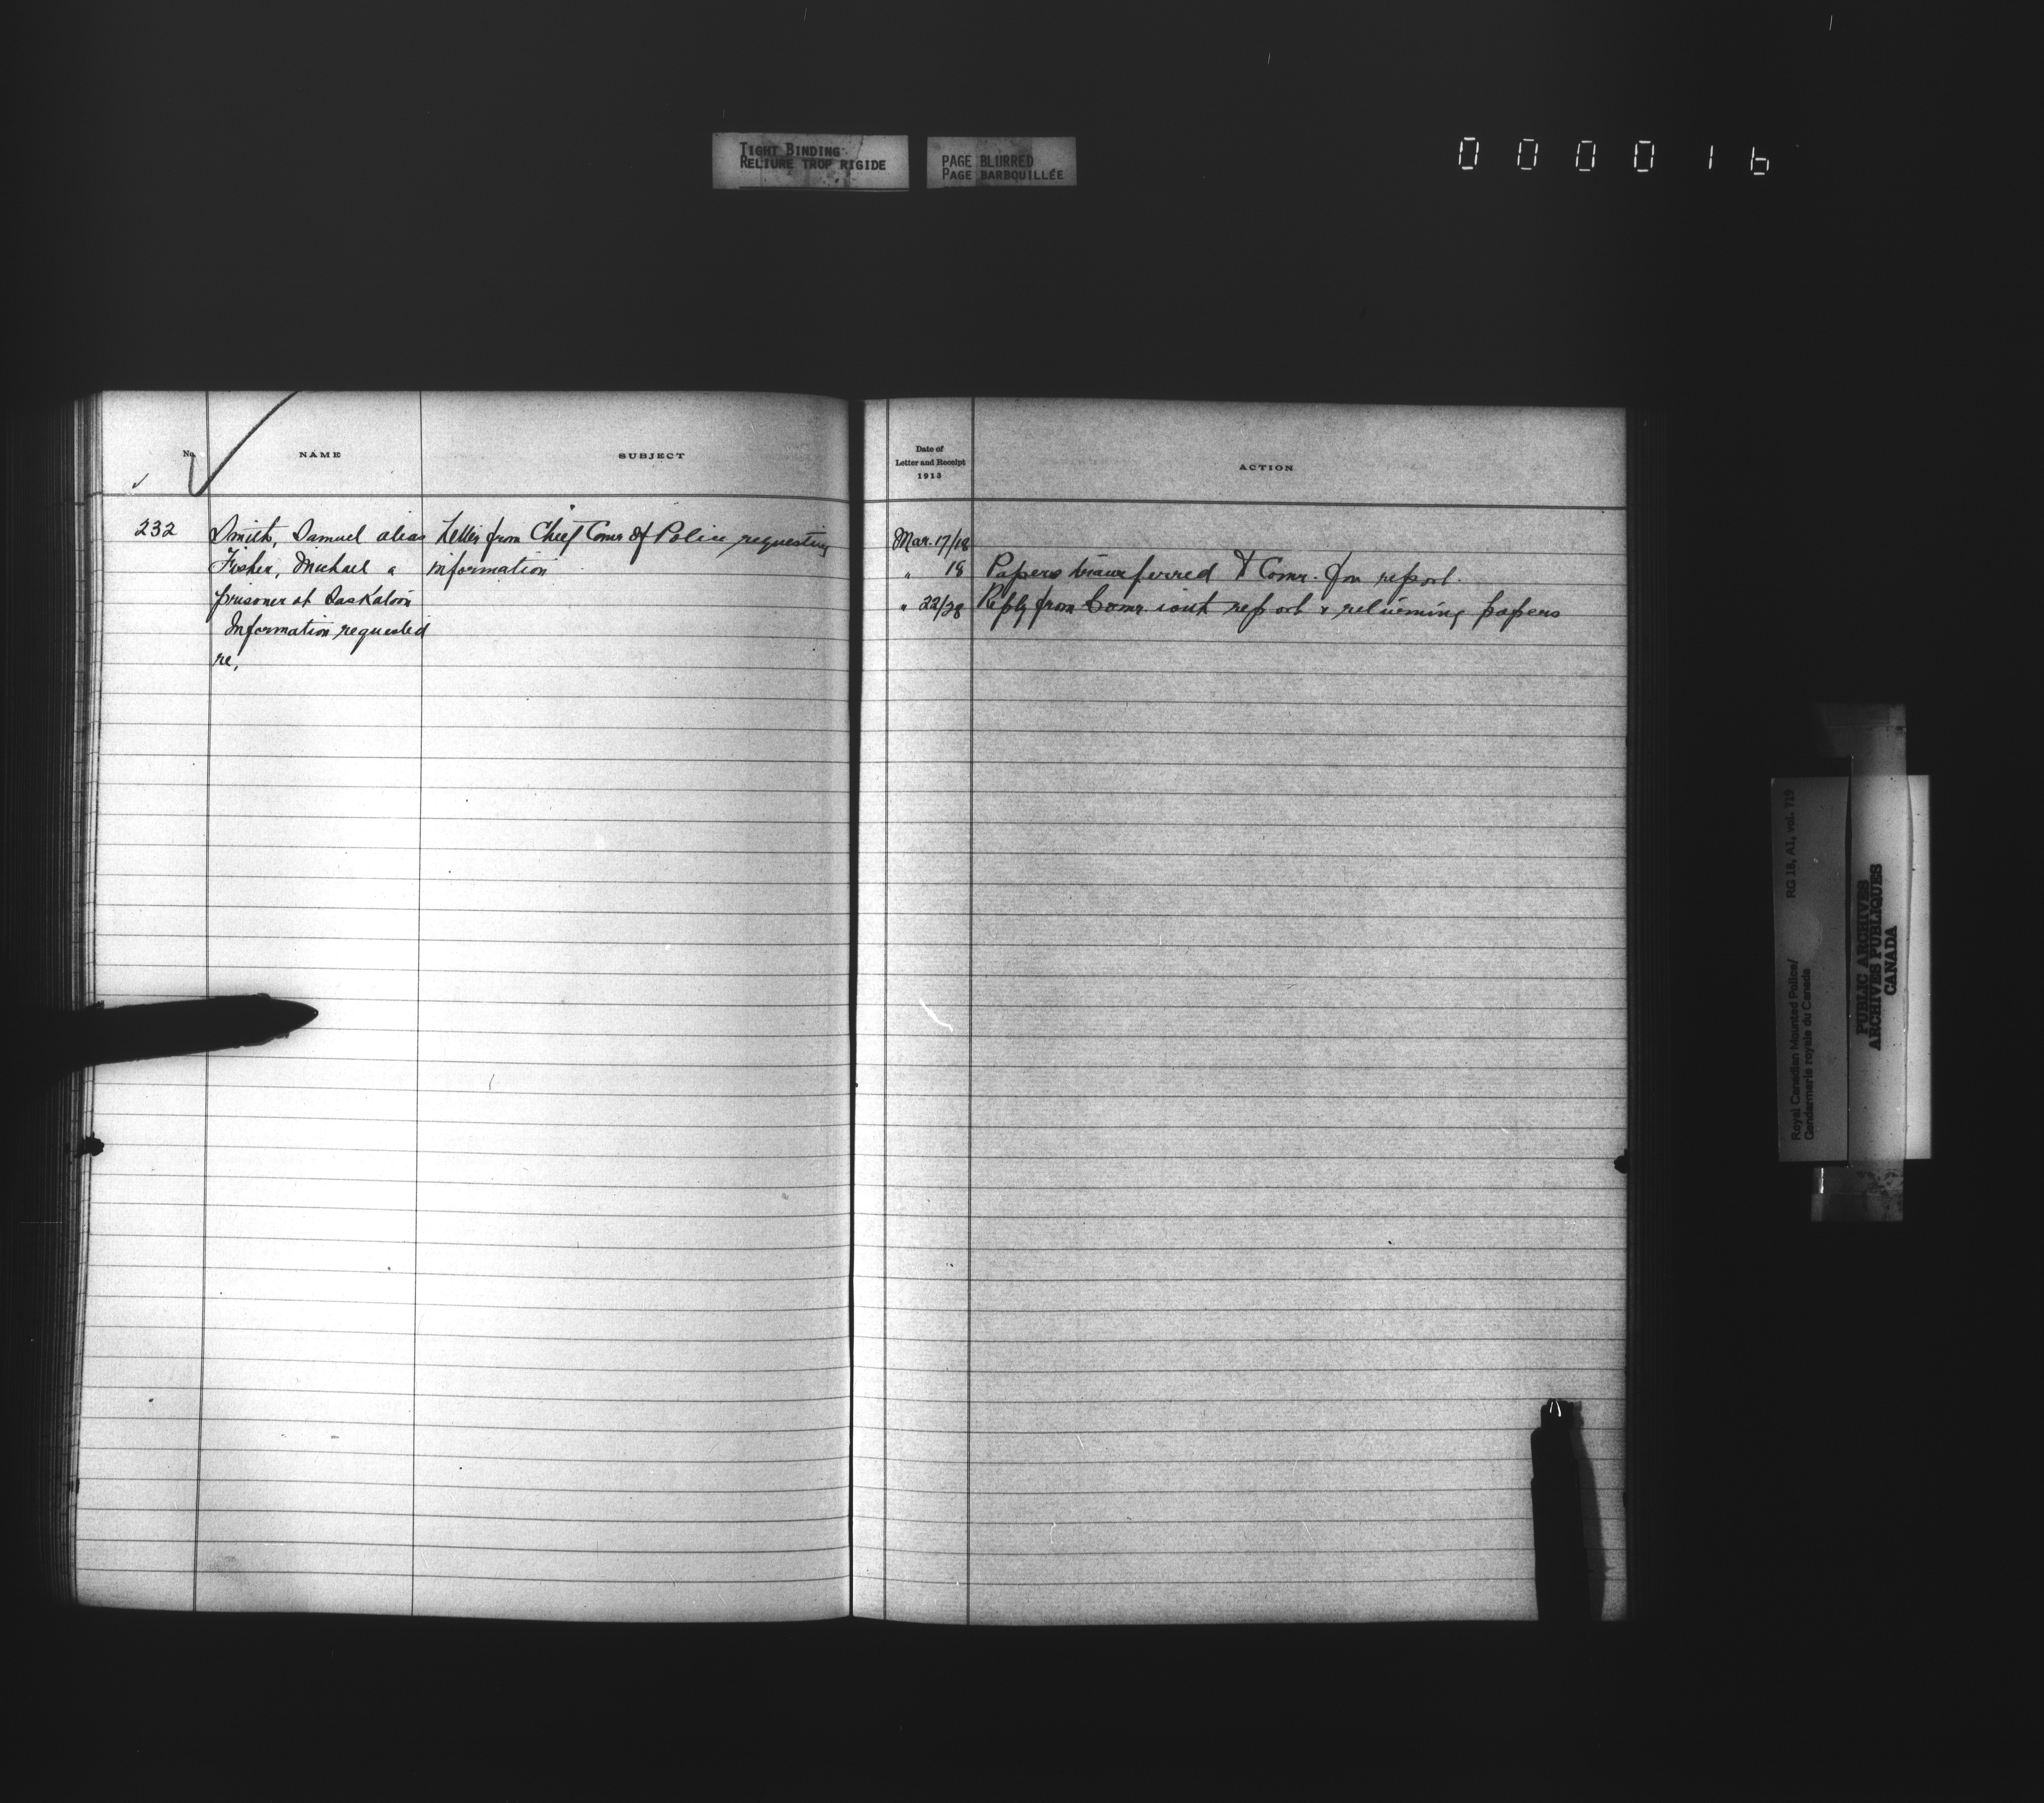 TIGHT BINDING
RELIURE TROP RIGIDE
PAGE BLURRED
PAGE BARBOUILLÉE
000016
No. NAME SUBJECT
Date of
Letter and Receipt
1913
ACTION
232 Smith, Samuel alias Letter from Chief Comr of Police requesting
Fisher, Michael a information
prisoner at Saskatoon
Information requested
re,
Mar. 17/18
" 18 Papers transferred to Comr. for report.
" 22/28 Reply from Comr. with report & returning papers
Royal Canadian Mounted Police/ RG 18, A1, vol. 719
Gendarmerie royale du Canada
PUBLIC ARCHIVES
ARCHIVES PUBLIQUES
CANADA